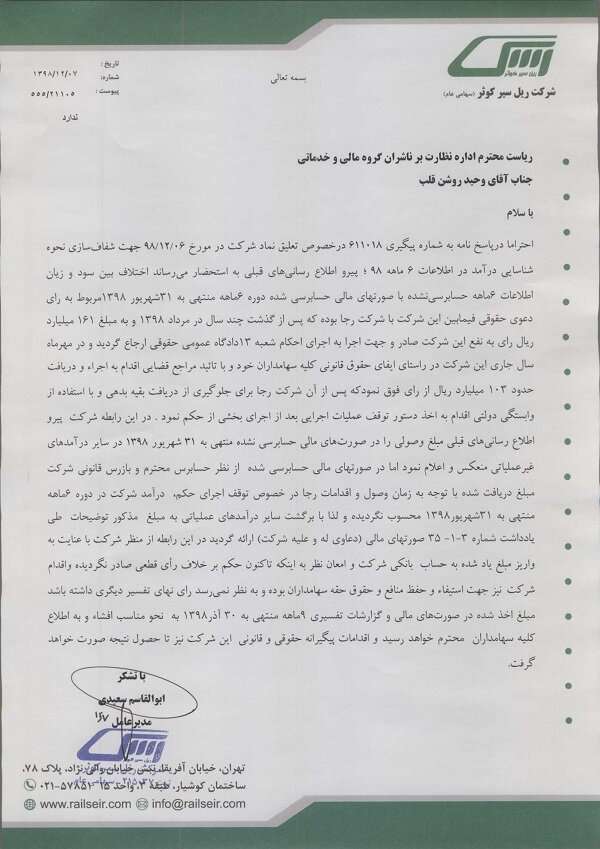 ریل سیر کوثر
شرکت ریل سیر کوثر (سهامی عام)
بسمه تعالی
تاریخ : ۱۳۹۸/۱۲/۰۷
شماره: ۵۵۵/۲۱۱۰۵
پیوست : ندارد
ریاست محترم اداره نظارت بر ناشران گروه مالی و خدماتی
جناب آقای وحید روشن قلب
با سلام
احتراما درپاسخ نامه به شماره پیگیری ۶۱۱۰۱۸ درخصوص تعلیق نماد شرکت در مورخ ۹۸/۱۲/۰۶ جهت شفاف‌سازی نحوه
شناسایی درآمد در اطلاعات ۶ ماهه ۹۸ ؛ پیرو اطلاع رسانی‌های قبلی به استحضار می‌رساند اختلاف بین سود و زیان
اطلاعات ۶ماهه حسابرسی‌نشده با صورتهای مالی حسابرسی شده دوره ۶ماهه منتهی به ۳۱شهریور ۱۳۹۸مربوط به رای
دعوی حقوقی فیمابین این شرکت با شرکت رجا بوده که پس از گذشت چند سال در مرداد ۱۳۹۸ و به مبلغ ۱۶۱ میلیارد
ریال رای به نفع این شرکت صادر و جهت اجرا به اجرای احکام شعبه ۱۳دادگاه عمومی حقوقی ارجاع گردید و در مهرماه
سال جاری این شرکت در راستای ایفای حقوق قانونی کلیه سهامداران خود و با تائید مراجع قضایی اقدام به اجراء و دریافت
حدود ۱۰۳ میلیارد ریال از رای فوق نمودکه پس از آن شرکت رجا برای جلوگیری از دریافت بقیه بدهی و با استفاده از
وابستگی دولتی اقدام به اخذ دستور توقف عملیات اجرایی بعد از اجرای بخشی از حکم نمود . در این رابطه شرکت پیرو
اطلاع رسانی‌های قبلی مبلغ وصولی را در صورت‌های مالی حسابرسی نشده منتهی به ۳۱ شهریور ۱۳۹۸ در سایر درآمدهای
غیرعملیاتی منعکس و اعلام نمود اما در صورتهای مالی حسابرسی شده از نظر حسابرس محترم و بازرس قانونی شرکت
مبلغ دریافت شده با توجه به زمان وصول و اقدامات رجا در خصوص توقف اجرای حکم، درآمد شرکت در دوره ۶ماهه
منتهی به ۳۱شهریور۱۳۹۸ محسوب نگردیده و لذا با برگشت سایر درآمدهای عملیاتی به مبلغ مذکور توضیحات طی
یادداشت شماره ۳-۱- ۳۵ صورتهای مالی (دعاوی له و علیه شرکت) ارائه گردید در این رابطه از منظر شرکت با عنایت به
واریز مبلغ یاد شده به حساب بانکی شرکت و امعان نظر به اینکه تاکنون حکم بر خلاف رأی قطعی صادر نگردیده واقدام
شرکت نیز جهت استیفاء و حفظ منافع و حقوق حقه سهامداران بوده و به نظر نمی‌رسد رای نهای تفسیر دیگری داشته باشد
مبلغ اخذ شده در صورت‌های مالی و گزارشات تفسیری ۹ماهه منتهی به ۳۰ آذر۱۳۹۸ به نحو مناسب افشاء و به اطلاع
کلیه سهامداران محترم خواهد رسید و اقدامات پیگیرانه حقوقی و قانونی این شرکت نیز تا حصول نتیجه صورت خواهد
گرفت.
با تشکر
ابوالقاسم سعیدی
مدیرعامل
تهران، خیابان آفریقا، نبش خیابان والی نژاد، پلاک ۷۸،
ساختمان کوشیار، طبقه ۴، واحد ۱۵ ۵۷۸۵۱-۰۲۱
www.railseir.com info@railseir.com